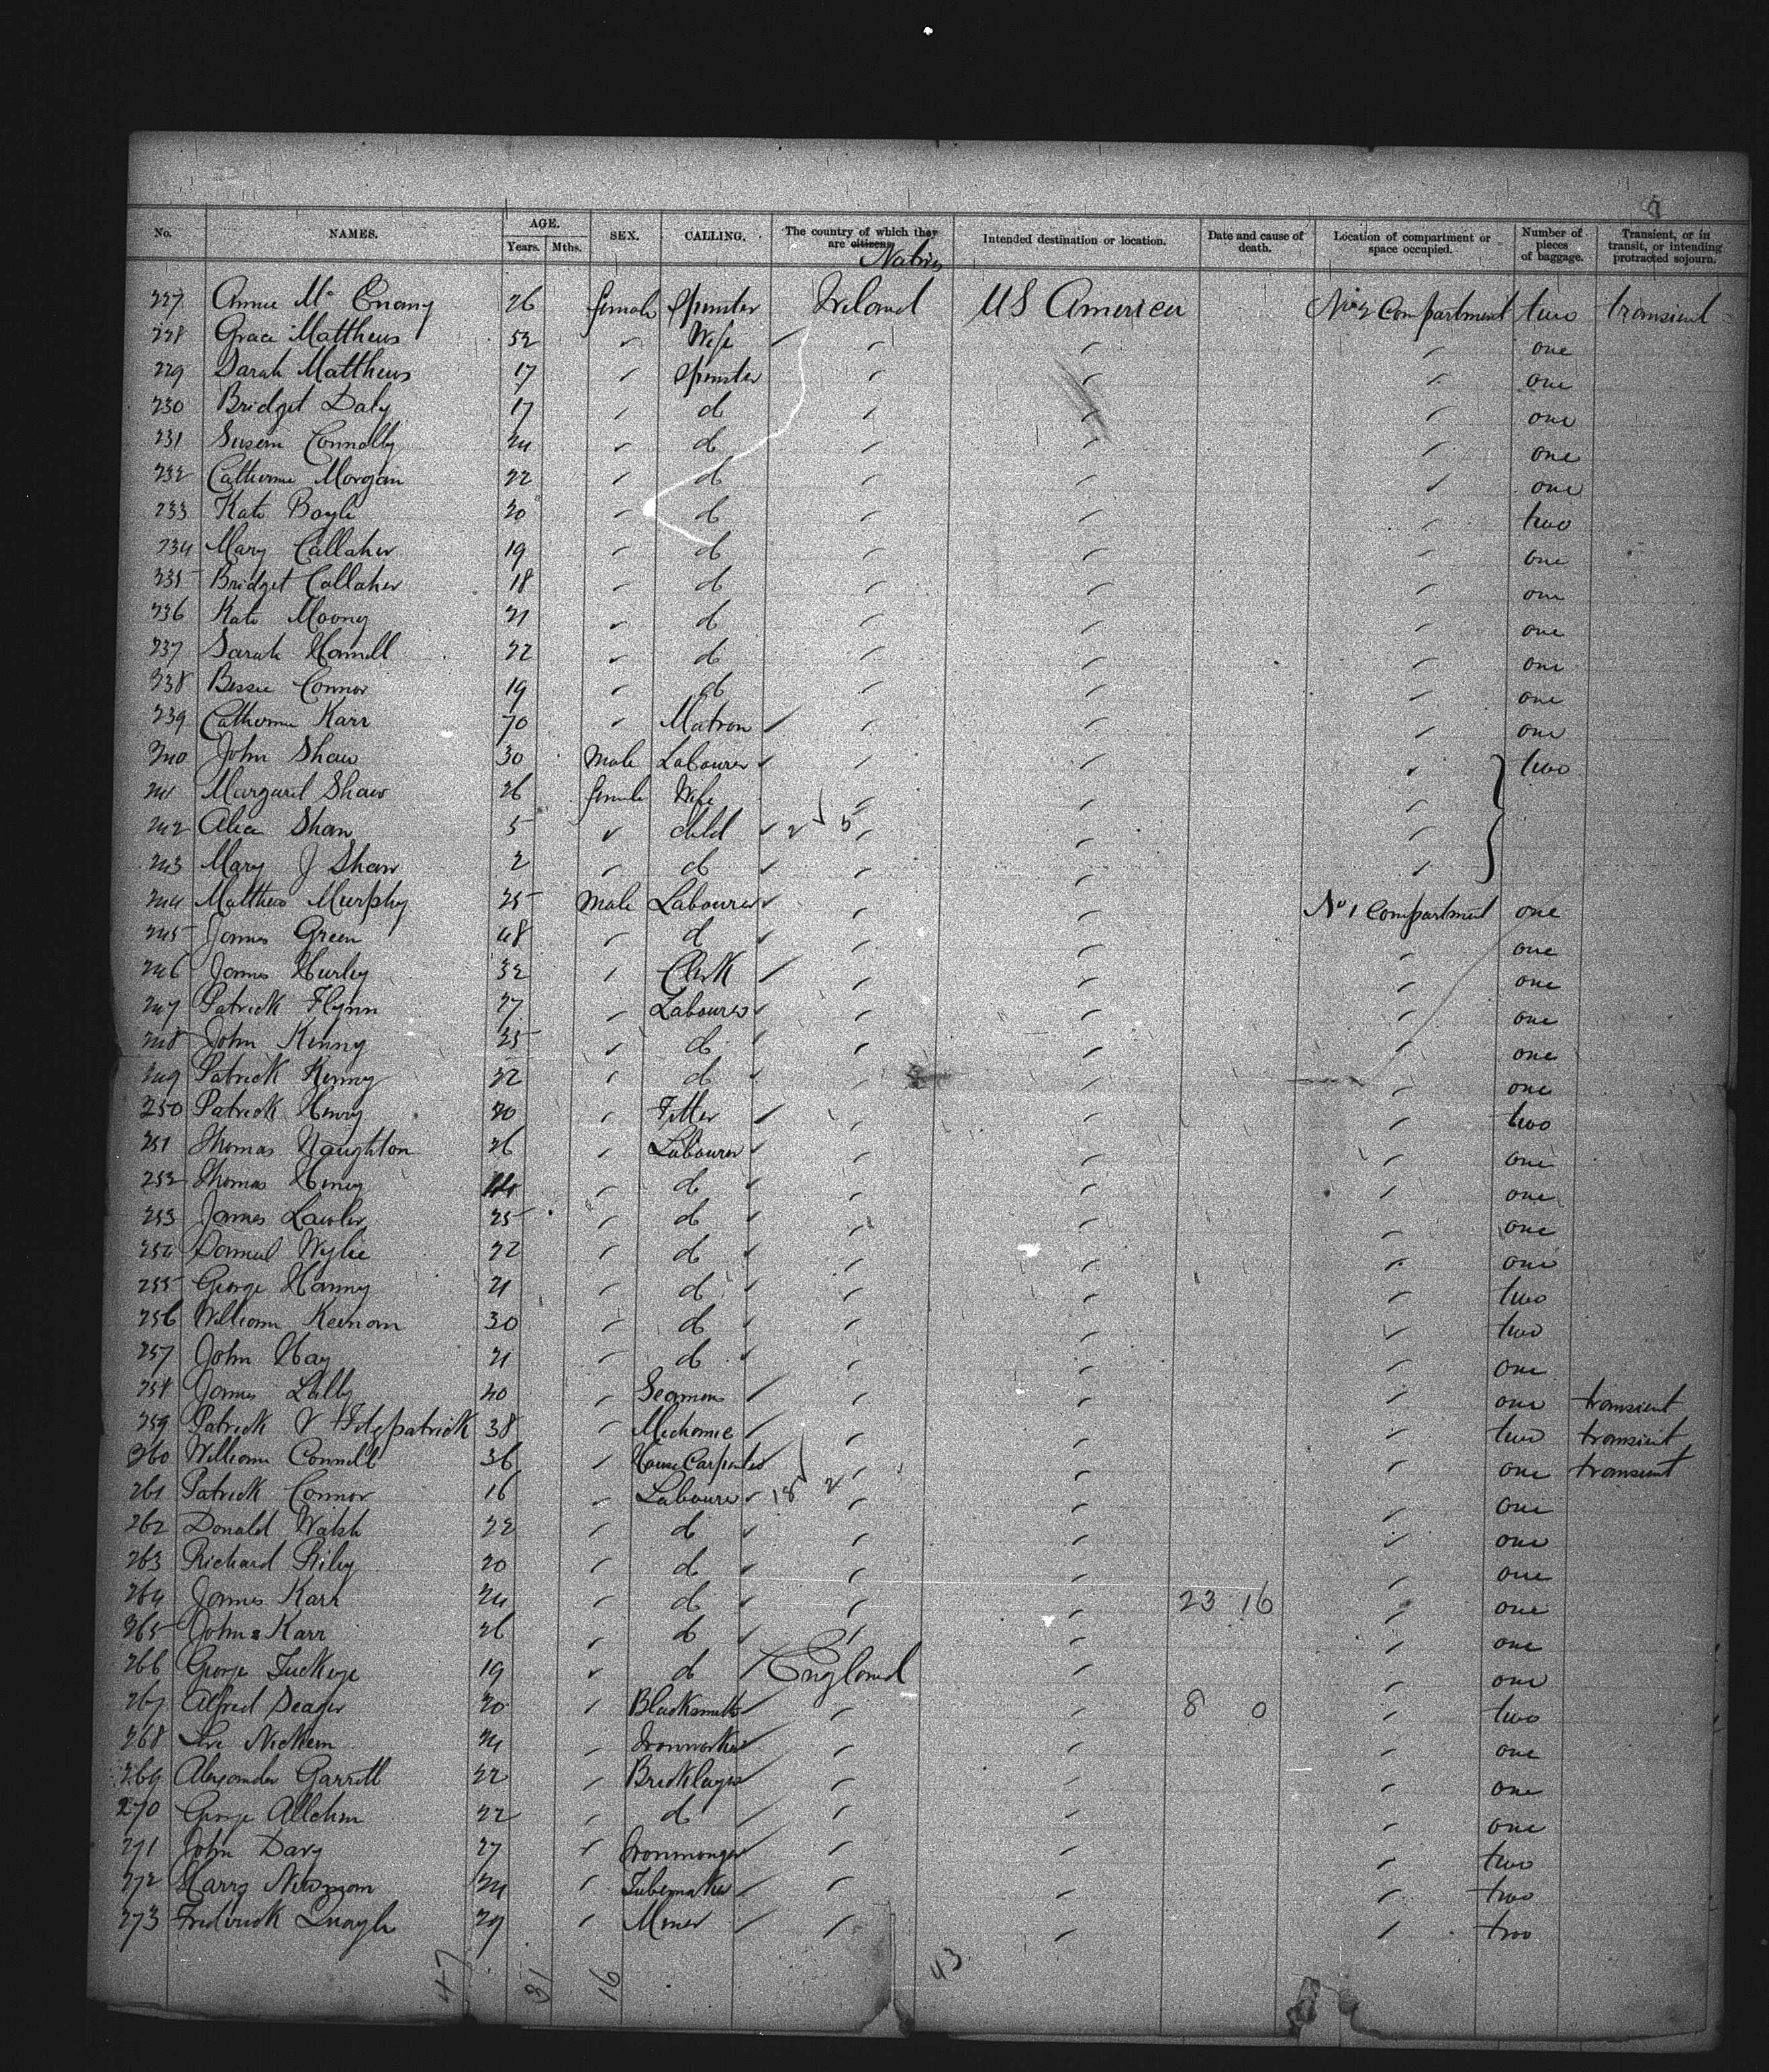 No. NAMES. AGE. Years. Mths. SEX. CALLING. The country of which they are citizens. Natives Intended destination or location. Date and cause of death. Location of compartment or space occupied. Number of pieces of baggage. Transient, or in transit, or intending protracted sojourn.
227 Annie Mc Enany 26 female Spinster Ireland US America No 2 Compartment two transient
228 Grace Matthews 52 " Wife " " " one
229 Sarah Matthews 17 " Spinster " " " one
230 Bridget Daly 17 " do " " " one
231 Susan Connolly 24 " do " " " one
232 Catherine Morgan 22 " do " " " one
233 Kate Boyle 20 " do " " " two
234 Mary Callaher 19 " do " " " one
235 Bridget Callaher 18 " do " " " one
236 Kate Moony 21 " do " " " one
237 Sarah Hamill 22 " do " " " one
238 Bessie Connor 19 " do " " " one
239 Catherine Karr 70 " Matron " " " one
240 John Shaw 30 Male Labourer " " " two
241 Margaret Shaw 26 female Wife " " "
242 Alice Shaw 5 " child 2 5 " " "
243 Mary J Shaw 2 " do " " "
244 Matthew Murphy 25 Male Labourer " " No 1 Compartment one
245 James Green 48 " do " " " one
246 James Hurley 32 " Clerk " " " one
247 Patrick Flynn 27 " Labourer " " " one
248 John Kenny 25 " do " " " one
249 Patrick Kenny 22 " do " " " one
250 Patrick Henry 20 " Fitter " " " two
251 Thomas Naughton 26 " Labourer " " " one
252 Thomas Henry " do " " " one
253 James Lawler 25 " do " " " one
254 Samuel Wylie 22 " do " " " one
255 George Hanny 21 " do " " " two
256 William Keenan 30 " do " " " two
257 John Hay 21 " do " " " one
258 James Lally 40 " Seaman " " " one transient
259 Patrick V Fitzpatrick 38 " Mechanic " " " two transient
260 William Connell 36 " House Carpenter " " " one transient
261 Patrick Connor 16 " Labourer 18 2 " " " one
262 Donald Walsh 22 " do " " " one
263 Richard Riley 20 " do " " " one
264 James Karr 24 " do " " 23 16 " one
265 John Karr 26 " do " " " one
266 George Tuckeye 19 " do England " " one
267 Alfred Seager 20 " Blacksmith " " 8 0 " two
268 Nickem 21 " Ironworker " " " one
269 Alexander Garrett 22 " Bricklayer " " " one
270 George Allchin 22 " do " " " one
271 John Davy 27 " Ironmonger " " " two
272 Harry Newman 24 " Tubemaker " " " two
273 Frederick Quayle 29 " Miner " " " two
47 31 16 43